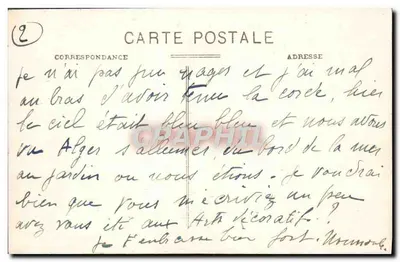 2
CARTE POSTALE
CORRESPONDANCE ADRESSE
Je n'ai pas pu nager et j'ai mal
au bras d'avoir tenu la corde, hier
le ciel était bleu bleu et nous avons
vu Alger s'allumer du bord de la mer
au jardin ou nous étions. Je voudrai
bien que vous m'écriviez un peu
avez vous été aux Arts décoratifs ?
Je t'embrasse bien fort.
CHAPITRE